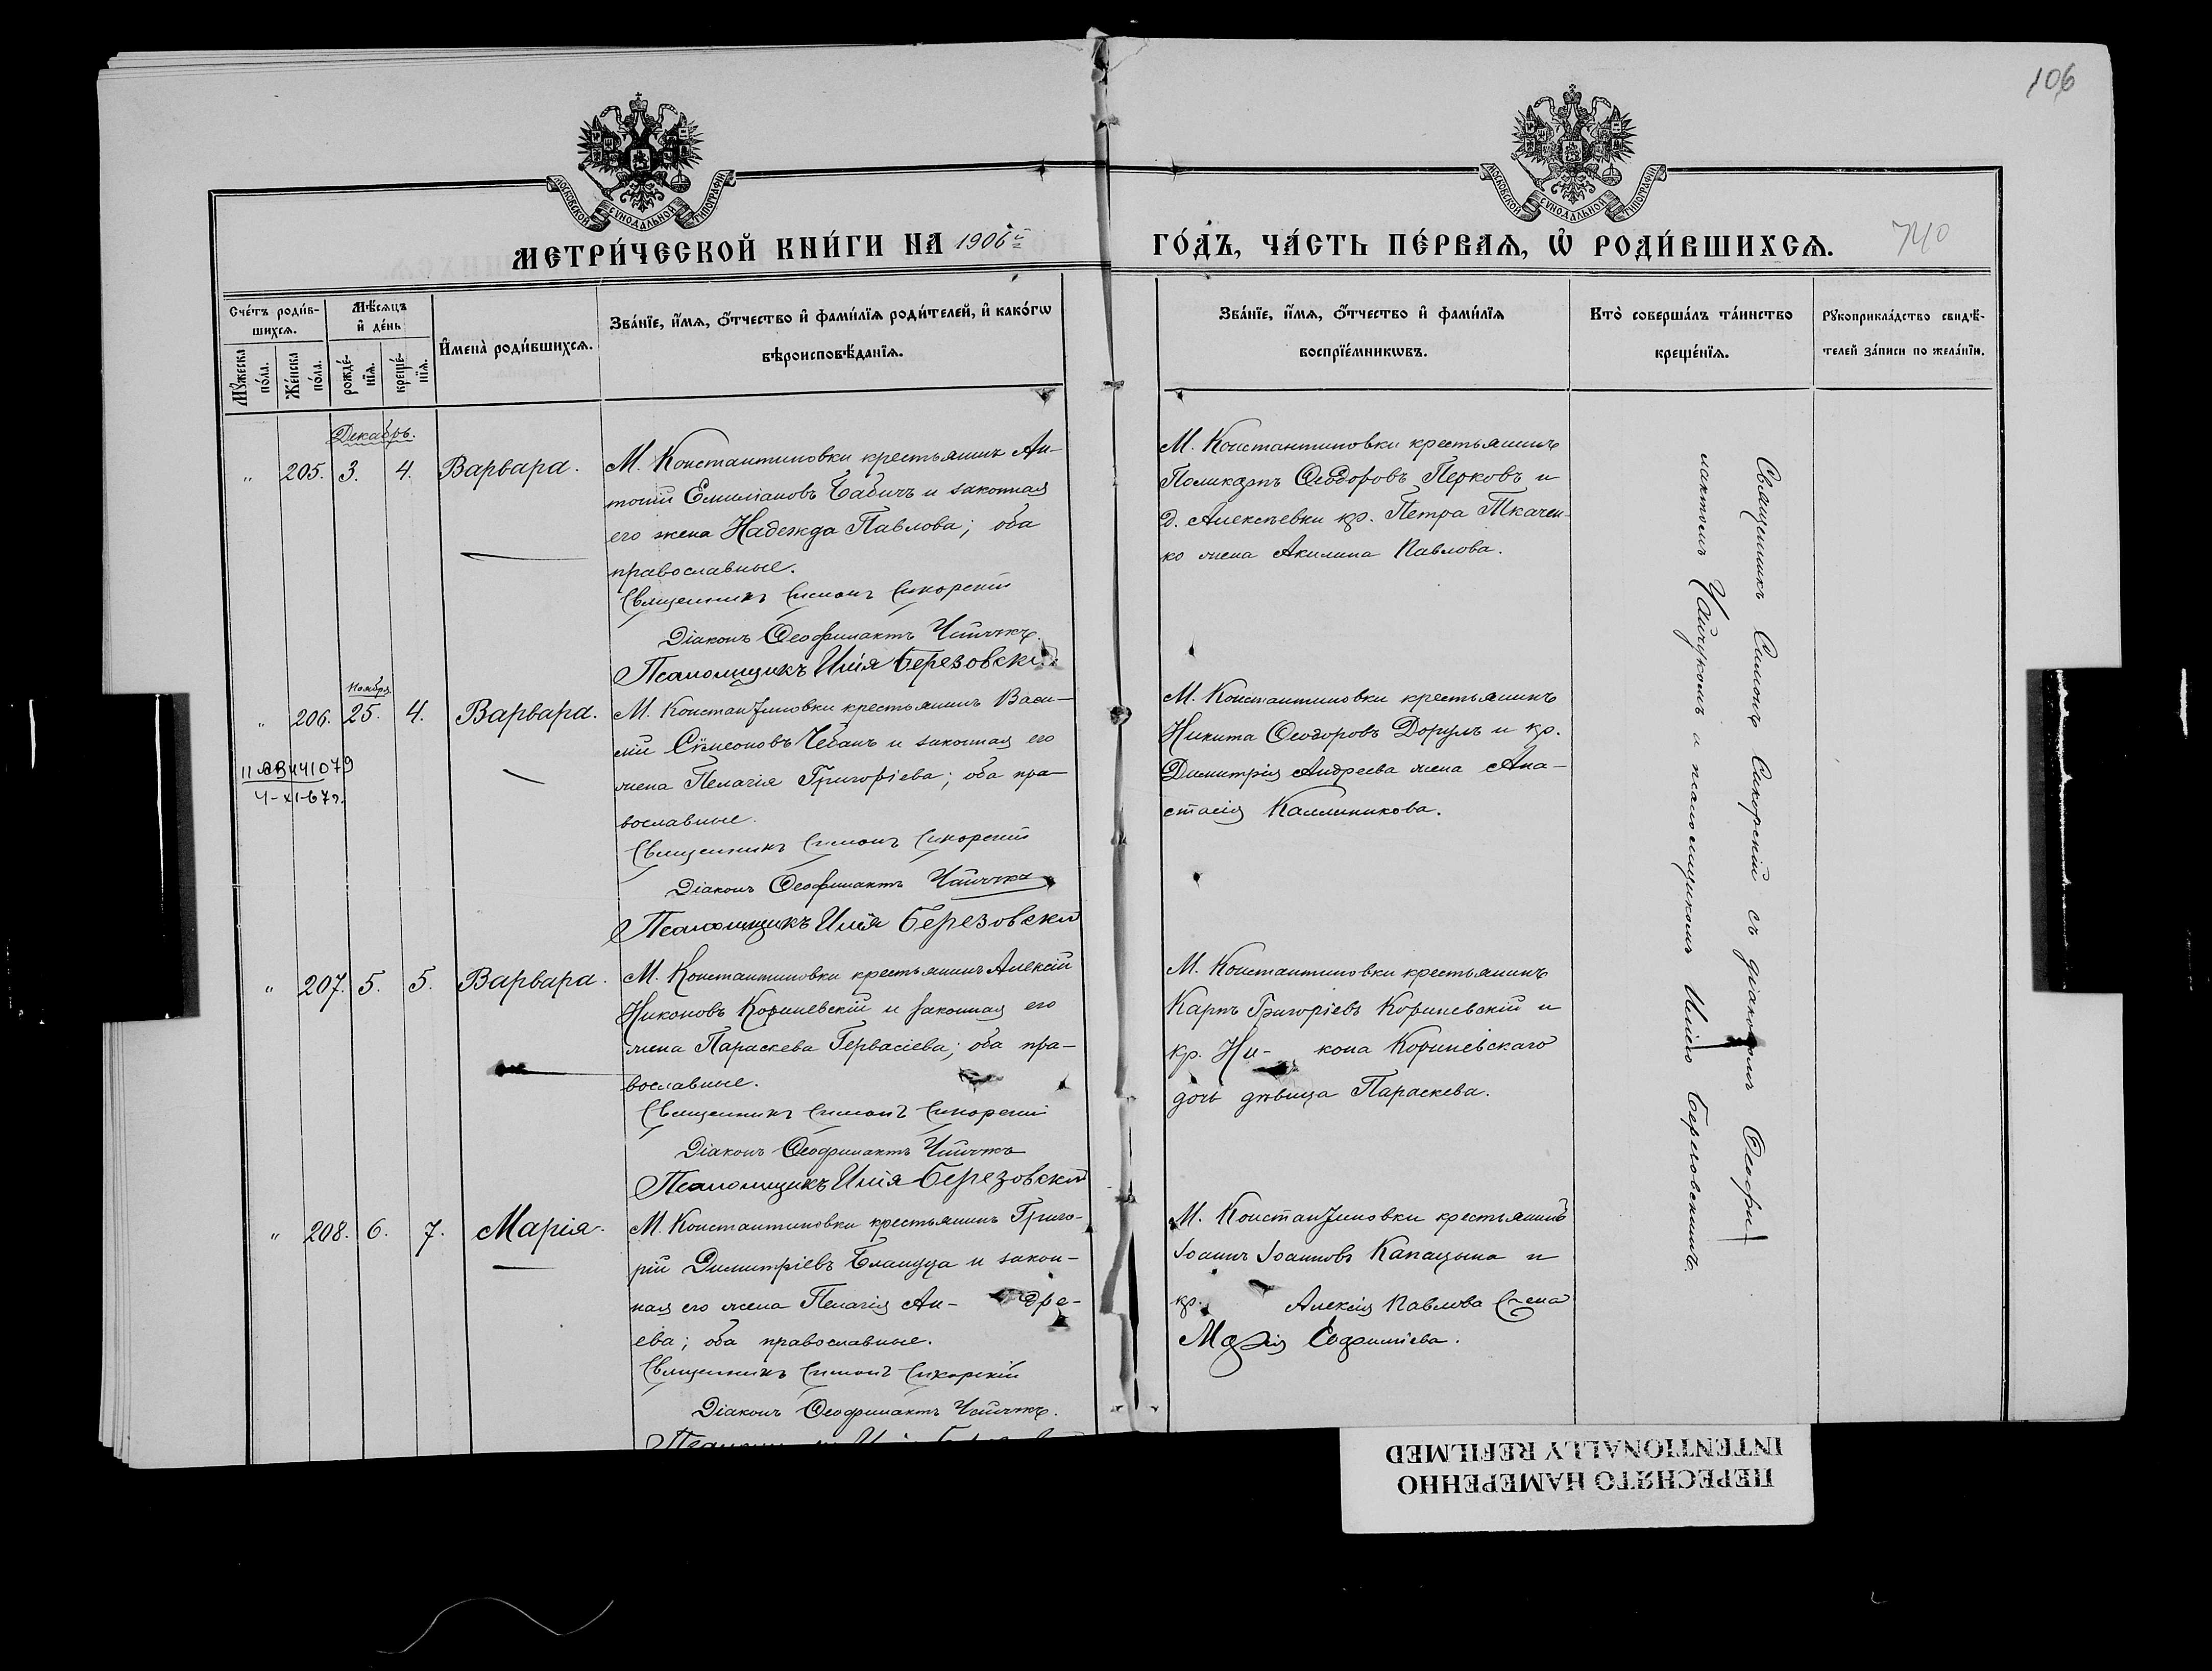 106
МОСКОВСКОЙ СѴНОДАЛЬНОЙ ТИПОГРАФІИ
МОСКОВСКОЙ СѴНОДАЛЬНОЙ ТИПОГРАФІИ
МЕТРИ́ЧЕСКОЙ КНИ́ГИ НА 1906й
ГО́ДЪ, ЧА́СТЬ ПЕ́РВАѦ, Ѡ҆ РОДИ́ВШИХСѦ.
740
Сче́тъ роди́в-
шихсѧ.
Мꙋжеска по́ла.
Же́нска по́ла.
Мѣ́сѧцъ
и҆ де́нь
рожде́-
нїѧ.
креще́-
нїѧ.
И҆мена̀ роди́вшихсѧ.
Зва́нїе, и҆́мѧ, ѻ҆́тчество и҆ фами́лїѧ роди́телей, и҆ како́гѡ
вѣроисповѣ́данїѧ.
Зва́нїе, и҆́мѧ, ѻ҆́тчество и҆ фами́лїѧ
воспрїе́мникѡвъ.
Кто̀ соверша́лъ та́инство
креще́нїѧ.
Рꙋкоприкла́дство свидѣ́-
телей за́писи по жела́нїю.
Декабрь.
" 205. 3. 4. Варвара.
М. Константиновки крестьянинъ Ан-
тоній Емиліановъ Бабичъ и законная
его жена Надежда Павлова; оба
православные.
Священникъ Симонъ Сикорскій
Діаконъ Ѳеофилактъ
Псаломщикъ Илія Березовскій
М. Константиновки крестьянинъ
Поликарпъ Ѳеодоровъ Перковъ и
д. Алексѣевки кр. Петра Ткачен-
ко жена Акилина Павлова.
Ноября
" 206. 25. 4. Варвара.
4-XI-67г.
М. Константиновки крестьянинъ Васи-
лій Сѵмеоновъ Чебанъ и законная его
жена Пелагія Григоріева; оба пра-
вославные.
Священникъ Симонъ Сикорскій
Діаконъ Ѳеофилактъ
Псаломщикъ Илія Березовскій
М. Константиновки крестьянинъ
Никита Ѳеодоровъ Дорулъ и кр.
Димитрія Андреева жена Ана-
стасія Каллиникова.
" 207. 5. 5. Варвара.
М. Константиновки крестьянинъ Алексій
Никоновъ Кориневскій и законная его
жена Параскева Гервасіева; оба пра-
вославные.
Священникъ Симонъ Сикорскій
Діаконъ Ѳеофилактъ
Псаломщикъ Илія Березовскій
М. Константиновки крестьянинъ
Карпъ Григоріевъ Кориневскій и
кр. Ни- кона Кориневскаго
дочь дѣвица Параскева.
" 208. 6. 7. Марія.
М. Константиновки крестьянинъ Григо-
рій Димитріевъ и закон-
ная его жена Пелагія Ан- дре-
ева; оба православные.
Священникъ Симонъ Сикорскій
Діаконъ Ѳеофилактъ
М. Константиновки крестьянинъ
Іоаннъ Іоанновъ Капацына и
кр. Алексія Павлова жена
Марія
Священникъ Симонъ Сикорскій съ діакономъ Ѳеофи-
лактомъ и псаломщикомъ Иліею Березовскимъ.
ПЕРЕСНЯТО НАМЕРЕННО
INTENTIONALLY REFILMED